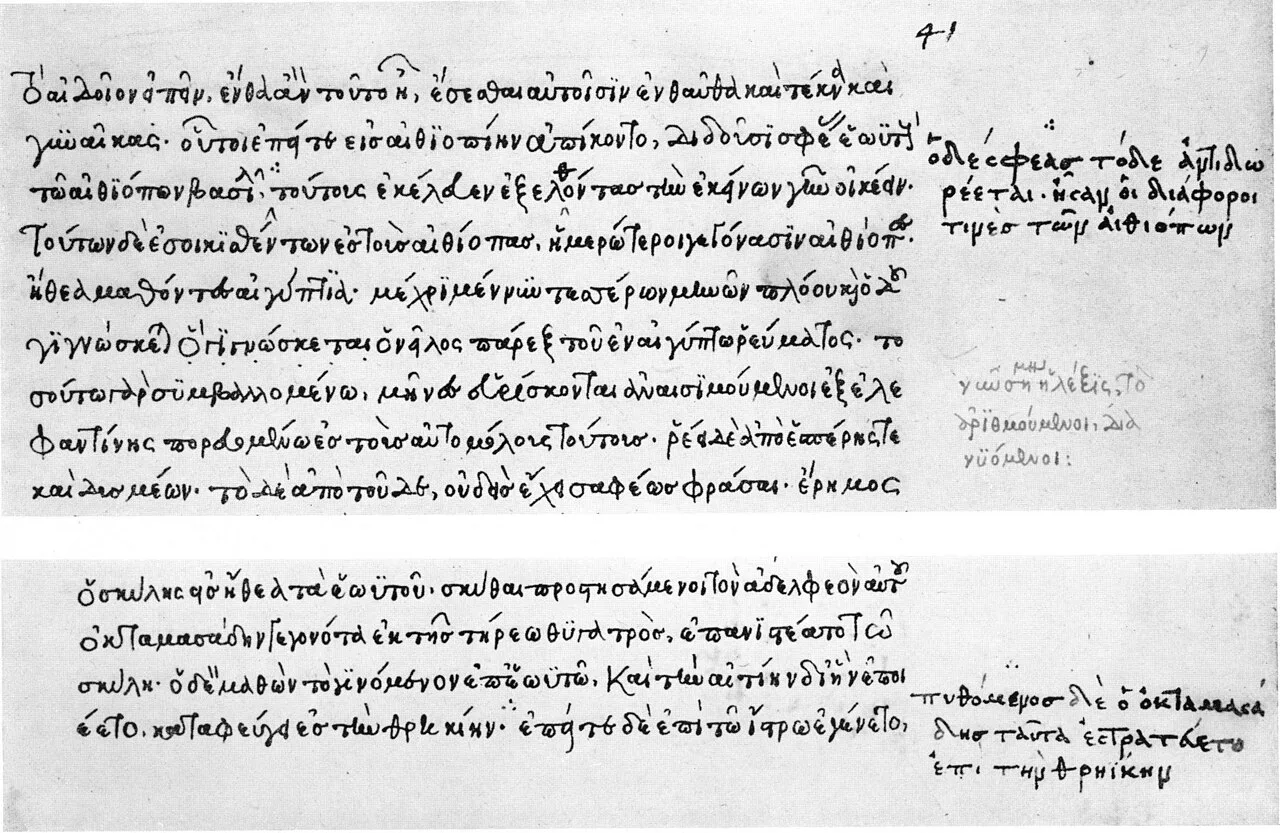 41
τὸ αἰδοῖον εἰπεῖν, ἔνθα ἂν τοῦτο ἦ, ἔσεσθαι αὐτοῖσϊν ἐνθαῦθα καὶ τέκνα καὶ
γυναῖκας· οὗτοι ἐπήτε εἰς αἰθϊοπίην ἀπίκοντο, διδοῦσϊ σφέας ἑωϋτοὺς
τῶ αἰθϊόπων βασιλεῖ· τούτοις ἐκέλευεν ἐξελόντας τὴν ἐκήνων γῆν οἰκέειν·
τούτων δὲ ἐσοικισθέντων ἐς τοὺς αἰθίοπας, ἡμερώτεροι γεγόνασϊν αἰθίοπες·
ἤθεα μαθόντες αἰγύπτϊα· μέχρϊ μέν νυν τεσσέρων μηνῶν πλόου καὶ ὁδοῦ
γϊγνώσκεται ὁ νεῖλος πάρεξ τοῦ ἐν αἰγύπτω ῥεύματος· το
σούτω γὰρ συμβαλλομένω, μῆνες εὑρίσκονται ἀναισϊμούμενοι ἐξ ἐλε
φαντίνης πορευομένω ἐς τοὺς αὐτομόλοις τούτοις· ῥέει δὲ ἀπὸ ἑσπέρης τε
καὶ δισμέων· τὸ δὲ ἀπὸ τοῦδε, οὐδεὶς ἔχει σαφέως φράσαι· ἔρημος
ὁ δὲ σφεας τόδε ἀντιδω
ρέεται· ἦσαν οἱ διάφοροι
τινὲς τῶν αἰθιόπων
γνώση μὴν ἡ λέξϊς, τὸ
ἀρϊθμούμενοι, δια
νϋόμενοι:
ὁ σκύλης ἐς ἤθεα τὰ ἑωϋτοῦ· σκύθαι προστησάμενοι τὸν ἀδελφεὸν αὐτοῦ
ὀκταμασάδην γεγονότα ἐκ τῆς τήρεω θϋγατρὸς, ἐπανϊστέατο τῶ
σκύλη· ὁ δὲ μαθὼν τὸ γϊνόμενον ἐπ' ἑωϋτῶ, καὶ τὴν αἰτίην δι' ἣν ἐποι
έετο, καταφεύγει ἐς τὴν θρηκίην· ἐπήτε δὲ ἐπὶ τῶ ἴστρω ἐγένετο,
πυθόμενος δὲ ὁ ὀκταμασά
δης ταῦτα ἐστρατεύετο
ἐπι τὴν θρηίκην